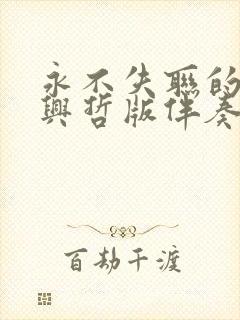 永不失聯的
興哲版伴奏
百劫千渡